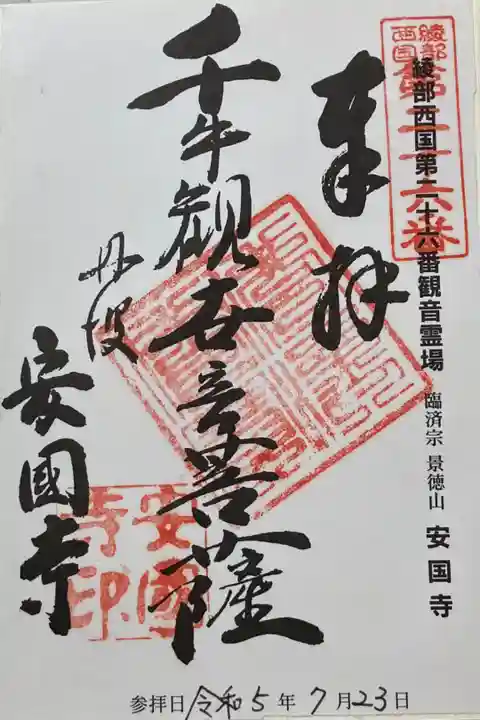 綾部西国第二十六番観音霊場 臨済宗 景徳山 安国寺
綾部
西国
第二十六番
奉拝
千手観世音菩薩
丹波
安國寺
安國
寺印
参拝日 令和5年7月23日